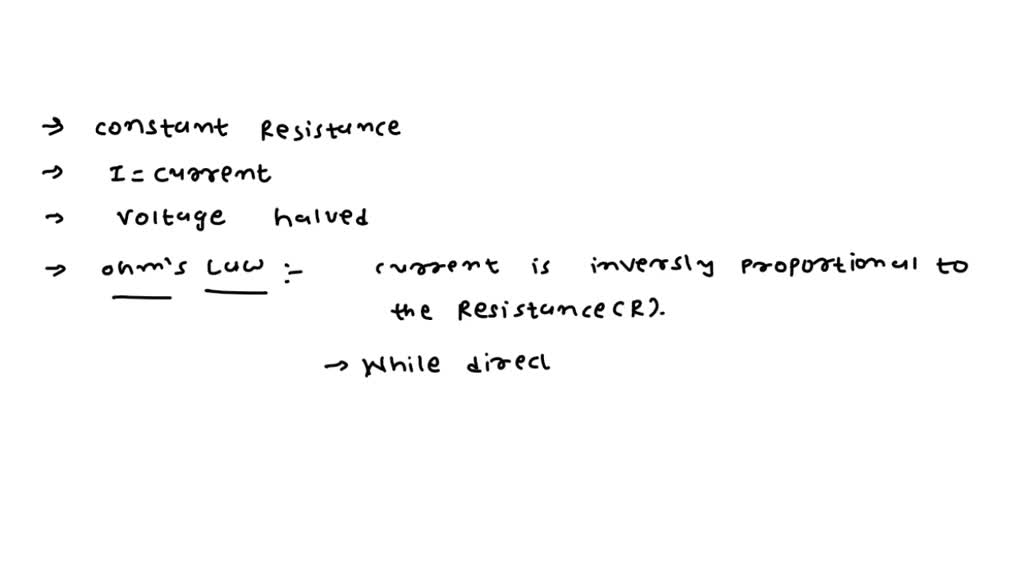 → constant Resistance
→ I = current
→ voltage halved
→ ohm's Law :- current is inversly proportional to
the Resistance (R).
→ While direct